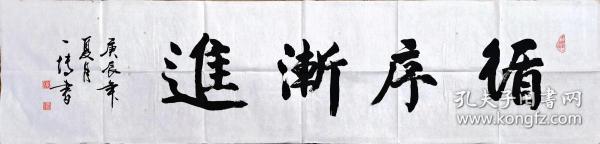 循序漸進
庚辰年
夏月
一博書
孔夫子旧书网
www.kongfz.com